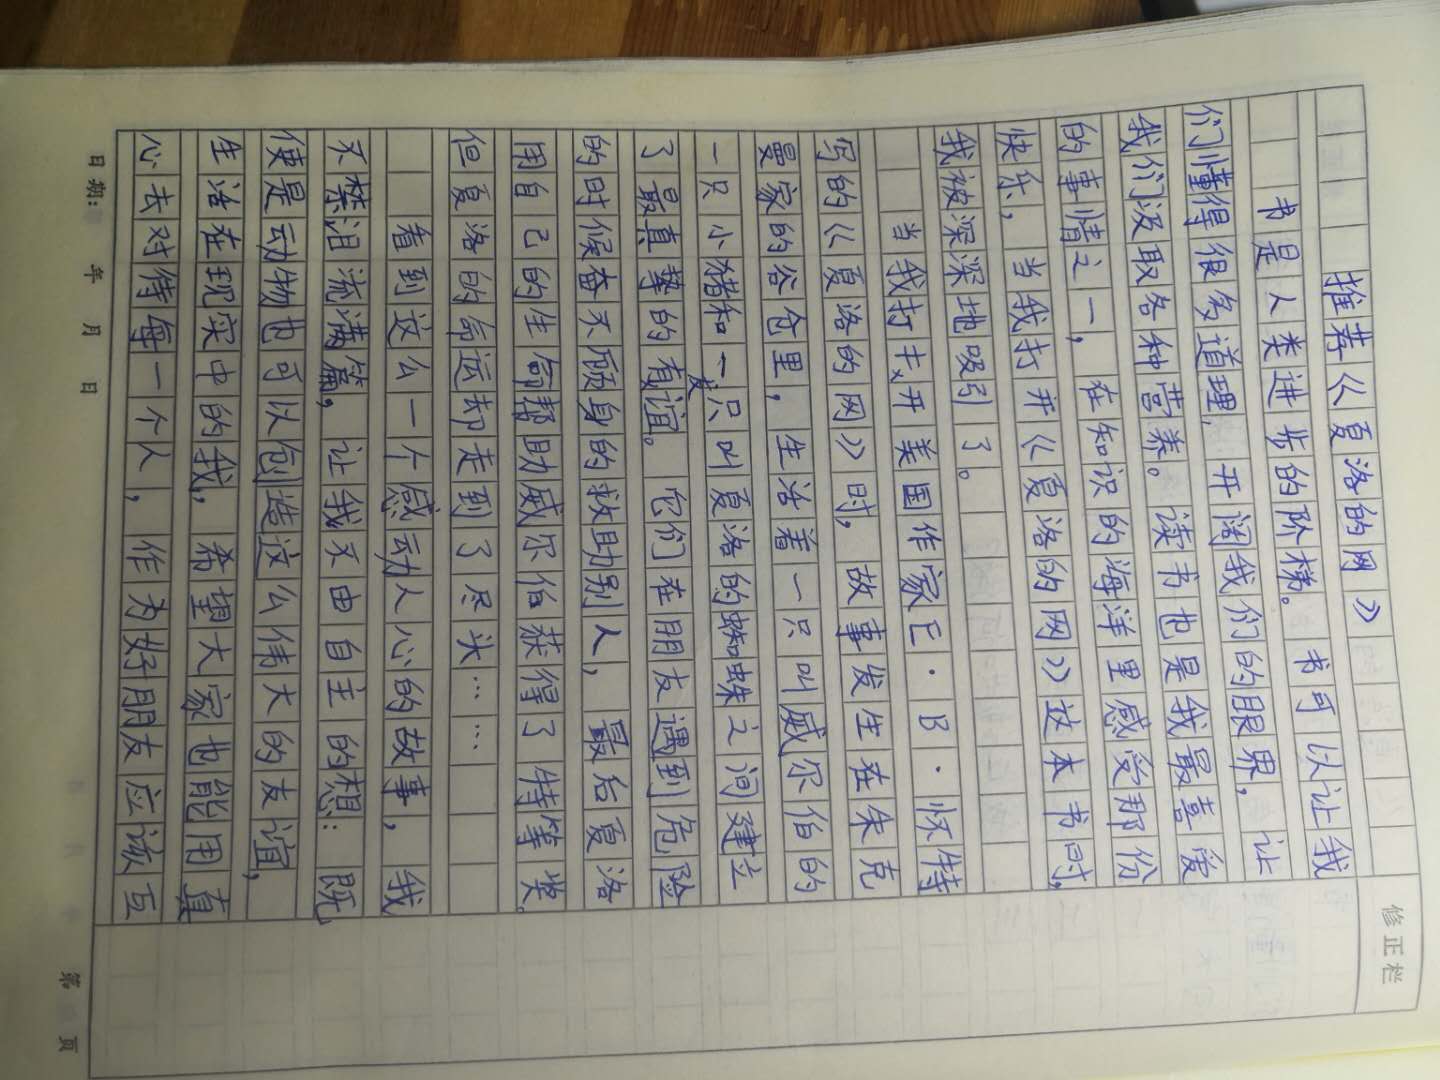 推荐《夏洛的网》
书是人类进步的阶梯。书可以让我
们懂得很多道理，开阔我们的眼界，让
我们汲取各种营养。读书也是我最喜爱
的事情之一，在知识的海洋里感受那份
快乐，当我打开《夏洛的网》这本书时，
我被深深地吸引了。
当我打开美国作家E·B·怀特
写的《夏洛的网》时，故事发生在朱克
曼家的谷仓里，生活着一只叫威尔伯的
一只小猪和一只叫夏洛的蜘蛛之间建立
了最真挚的友谊。它们在朋友遇到危险
的时候奋不顾身的救助别人，最后夏洛
用自己的生命帮助威尔伯获得了特等奖。
但夏洛的命运却走到了尽头……
看到这么一个感动人心的故事，我
不禁泪流满篇，让我不由自主的想：既
使是动物也可以创造这么伟大的友谊，
生活在现实中的我，希望大家也能用真
心去对待每一个人，作为好朋友应该互
修正栏
日期： 年 月 日
第 页